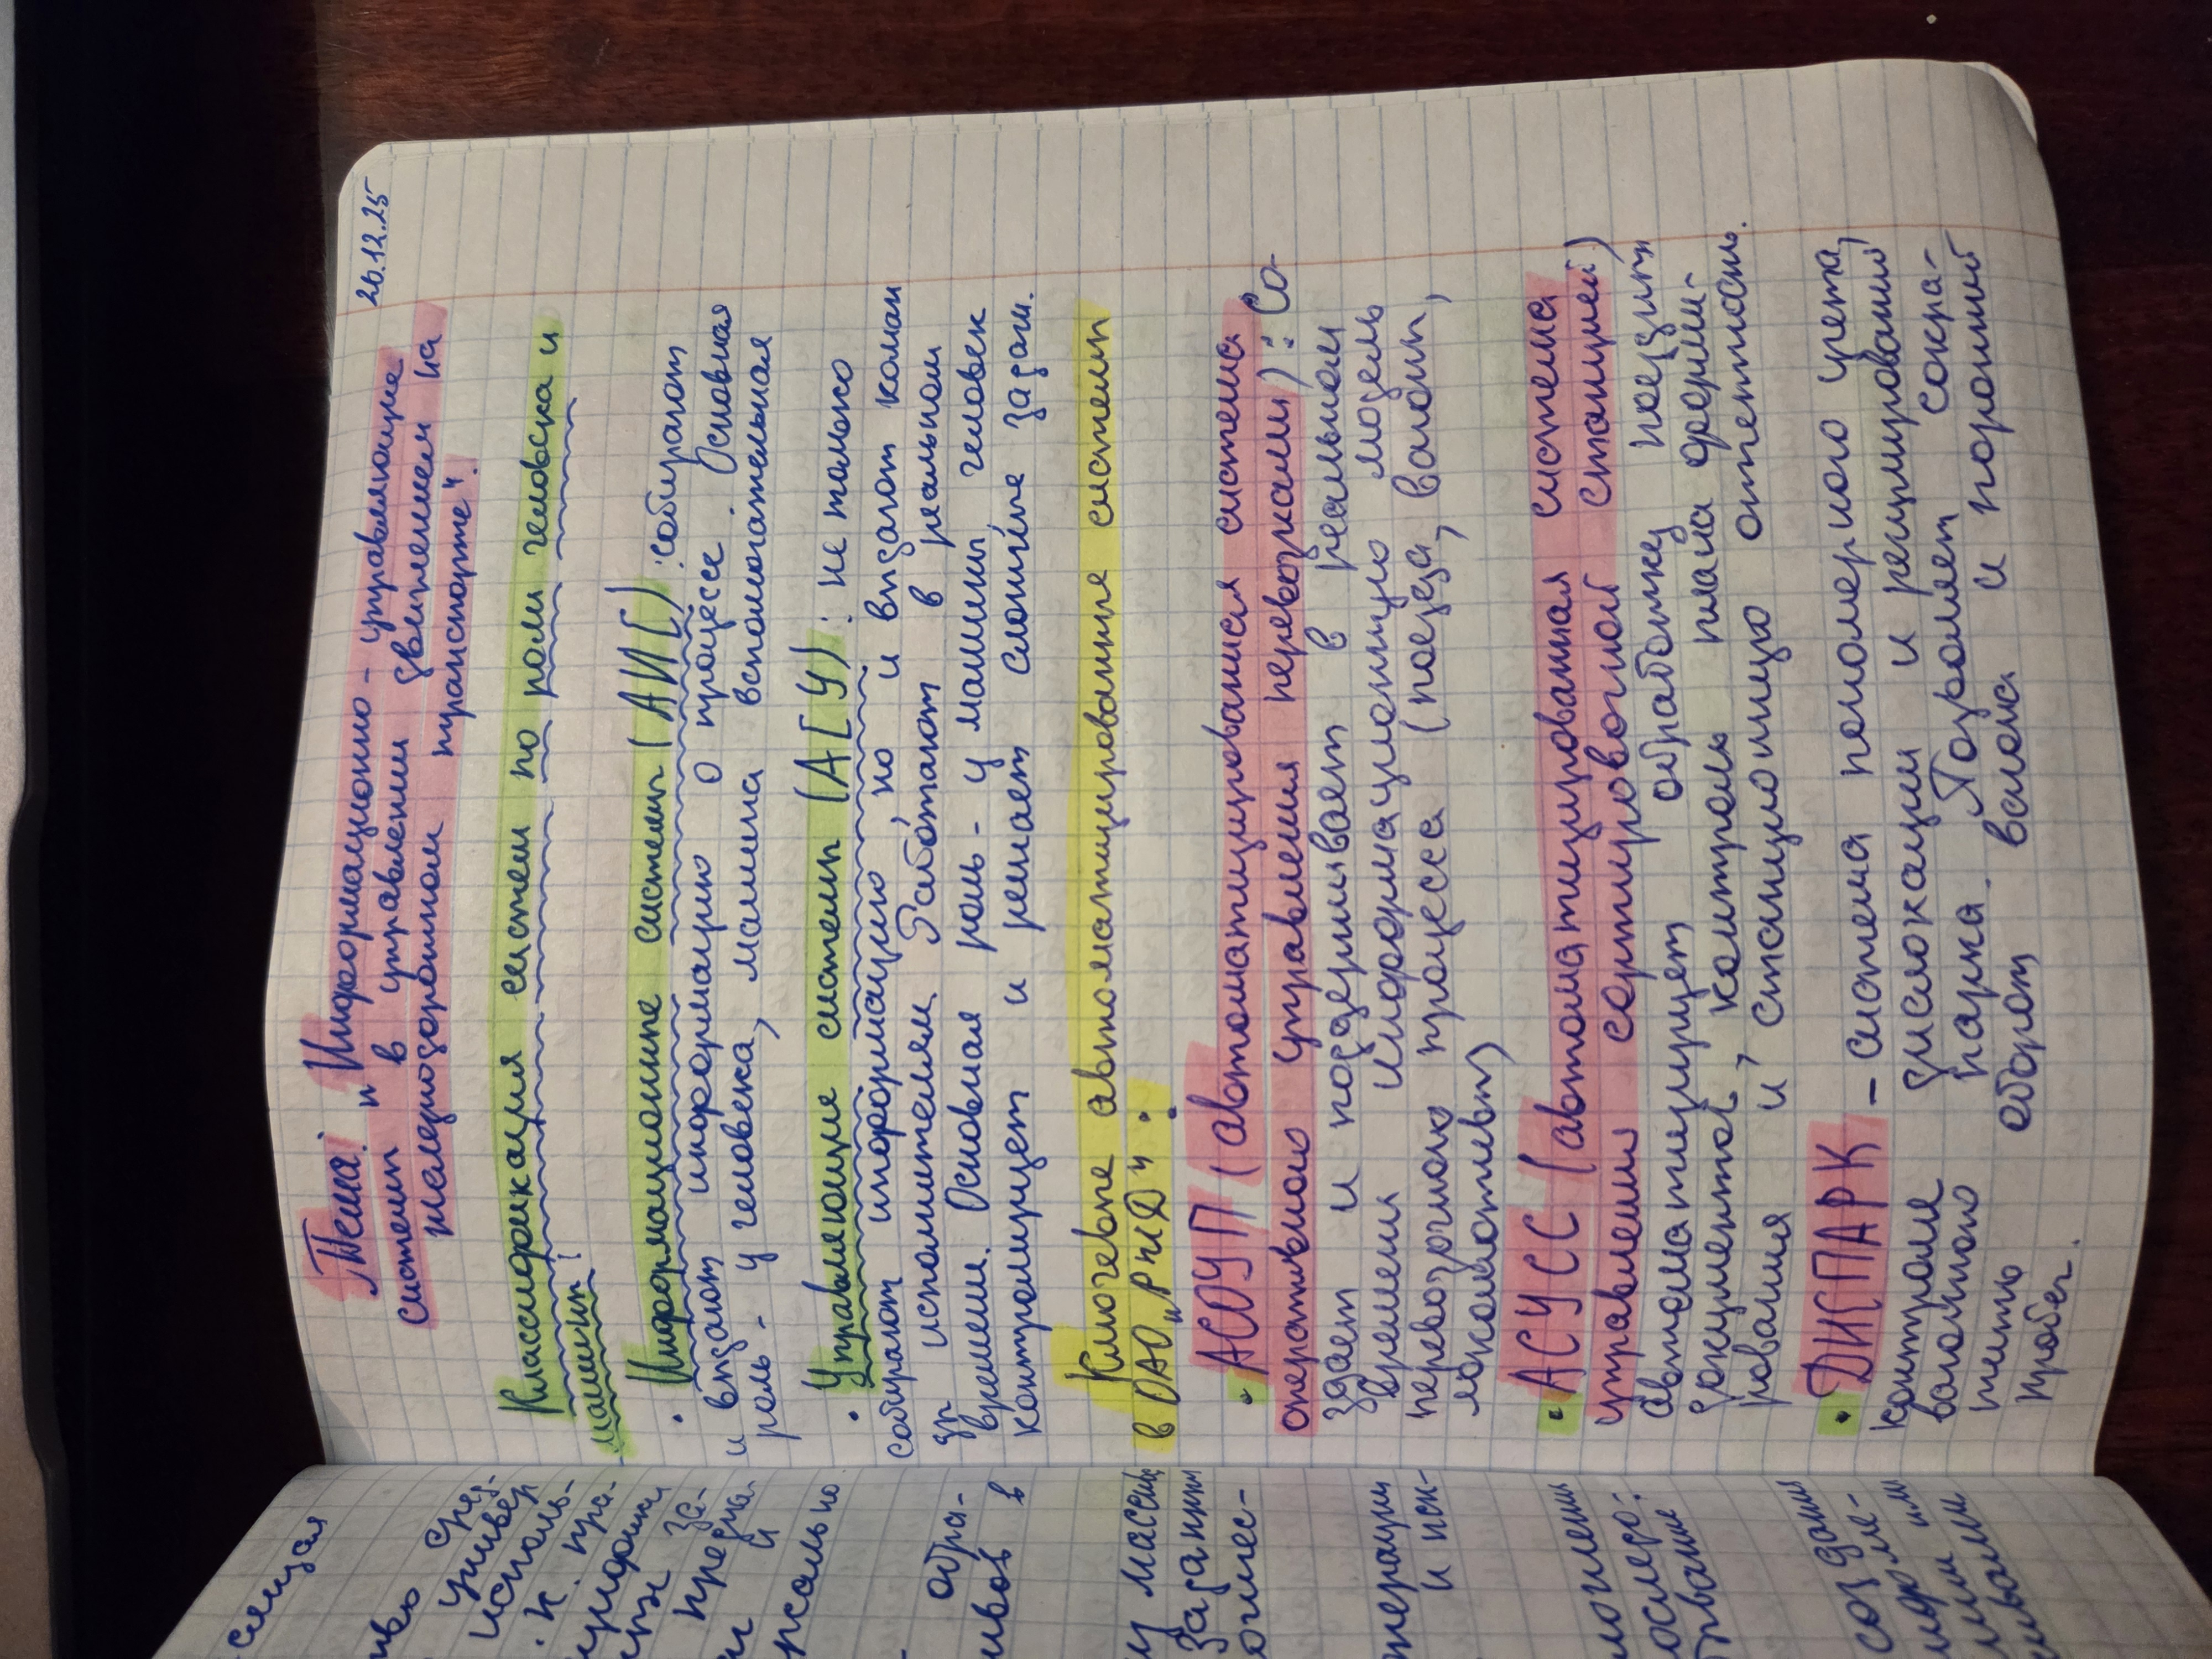 26.12.25
Тема: „Информационно - управляющие
систем в управлении движением на
железнодорожном транспорте".
Классификация систем по роли человека и
машин:
• Информационные системы (АИС): собирают
и выдают информацию о процессе. Основная
роль - у человека, машина вспомогательная
• Управляющие системы (АСУ): не только
собирают информацию, но и выдают коман
др исполнителем. Работают в реальном
времени. Основная роль - у машины, человек
контролирует и решает сложные задачи.
Ключевые автоматизированные системы
в ОАО „РЖД":
• АСОУП (автоматизированная система
оперативного управления перевозками): Со-
здает и поддерживает в реальном
времени информационную модель
перевозочного процесса (поезда, вагоны,
локомотивы)
• АСУСС (автоматизированная система
управления сортировочной станцией)
автоматизирует обработку поездит
документов, контроль плана форми-
рования и станционную отчетность.
• ДИСПАРК - система номерного учета,
контроля дислокации и регулирований
вагонного парка. Позволяет сокра-
тить оборот вагона и порожний
пробег.
слицая
сред-
универ
исполь-
. к. пра-
за-
предна-
и
обра-
в
у массив
задания
огичес-
операции
и иск-
создания